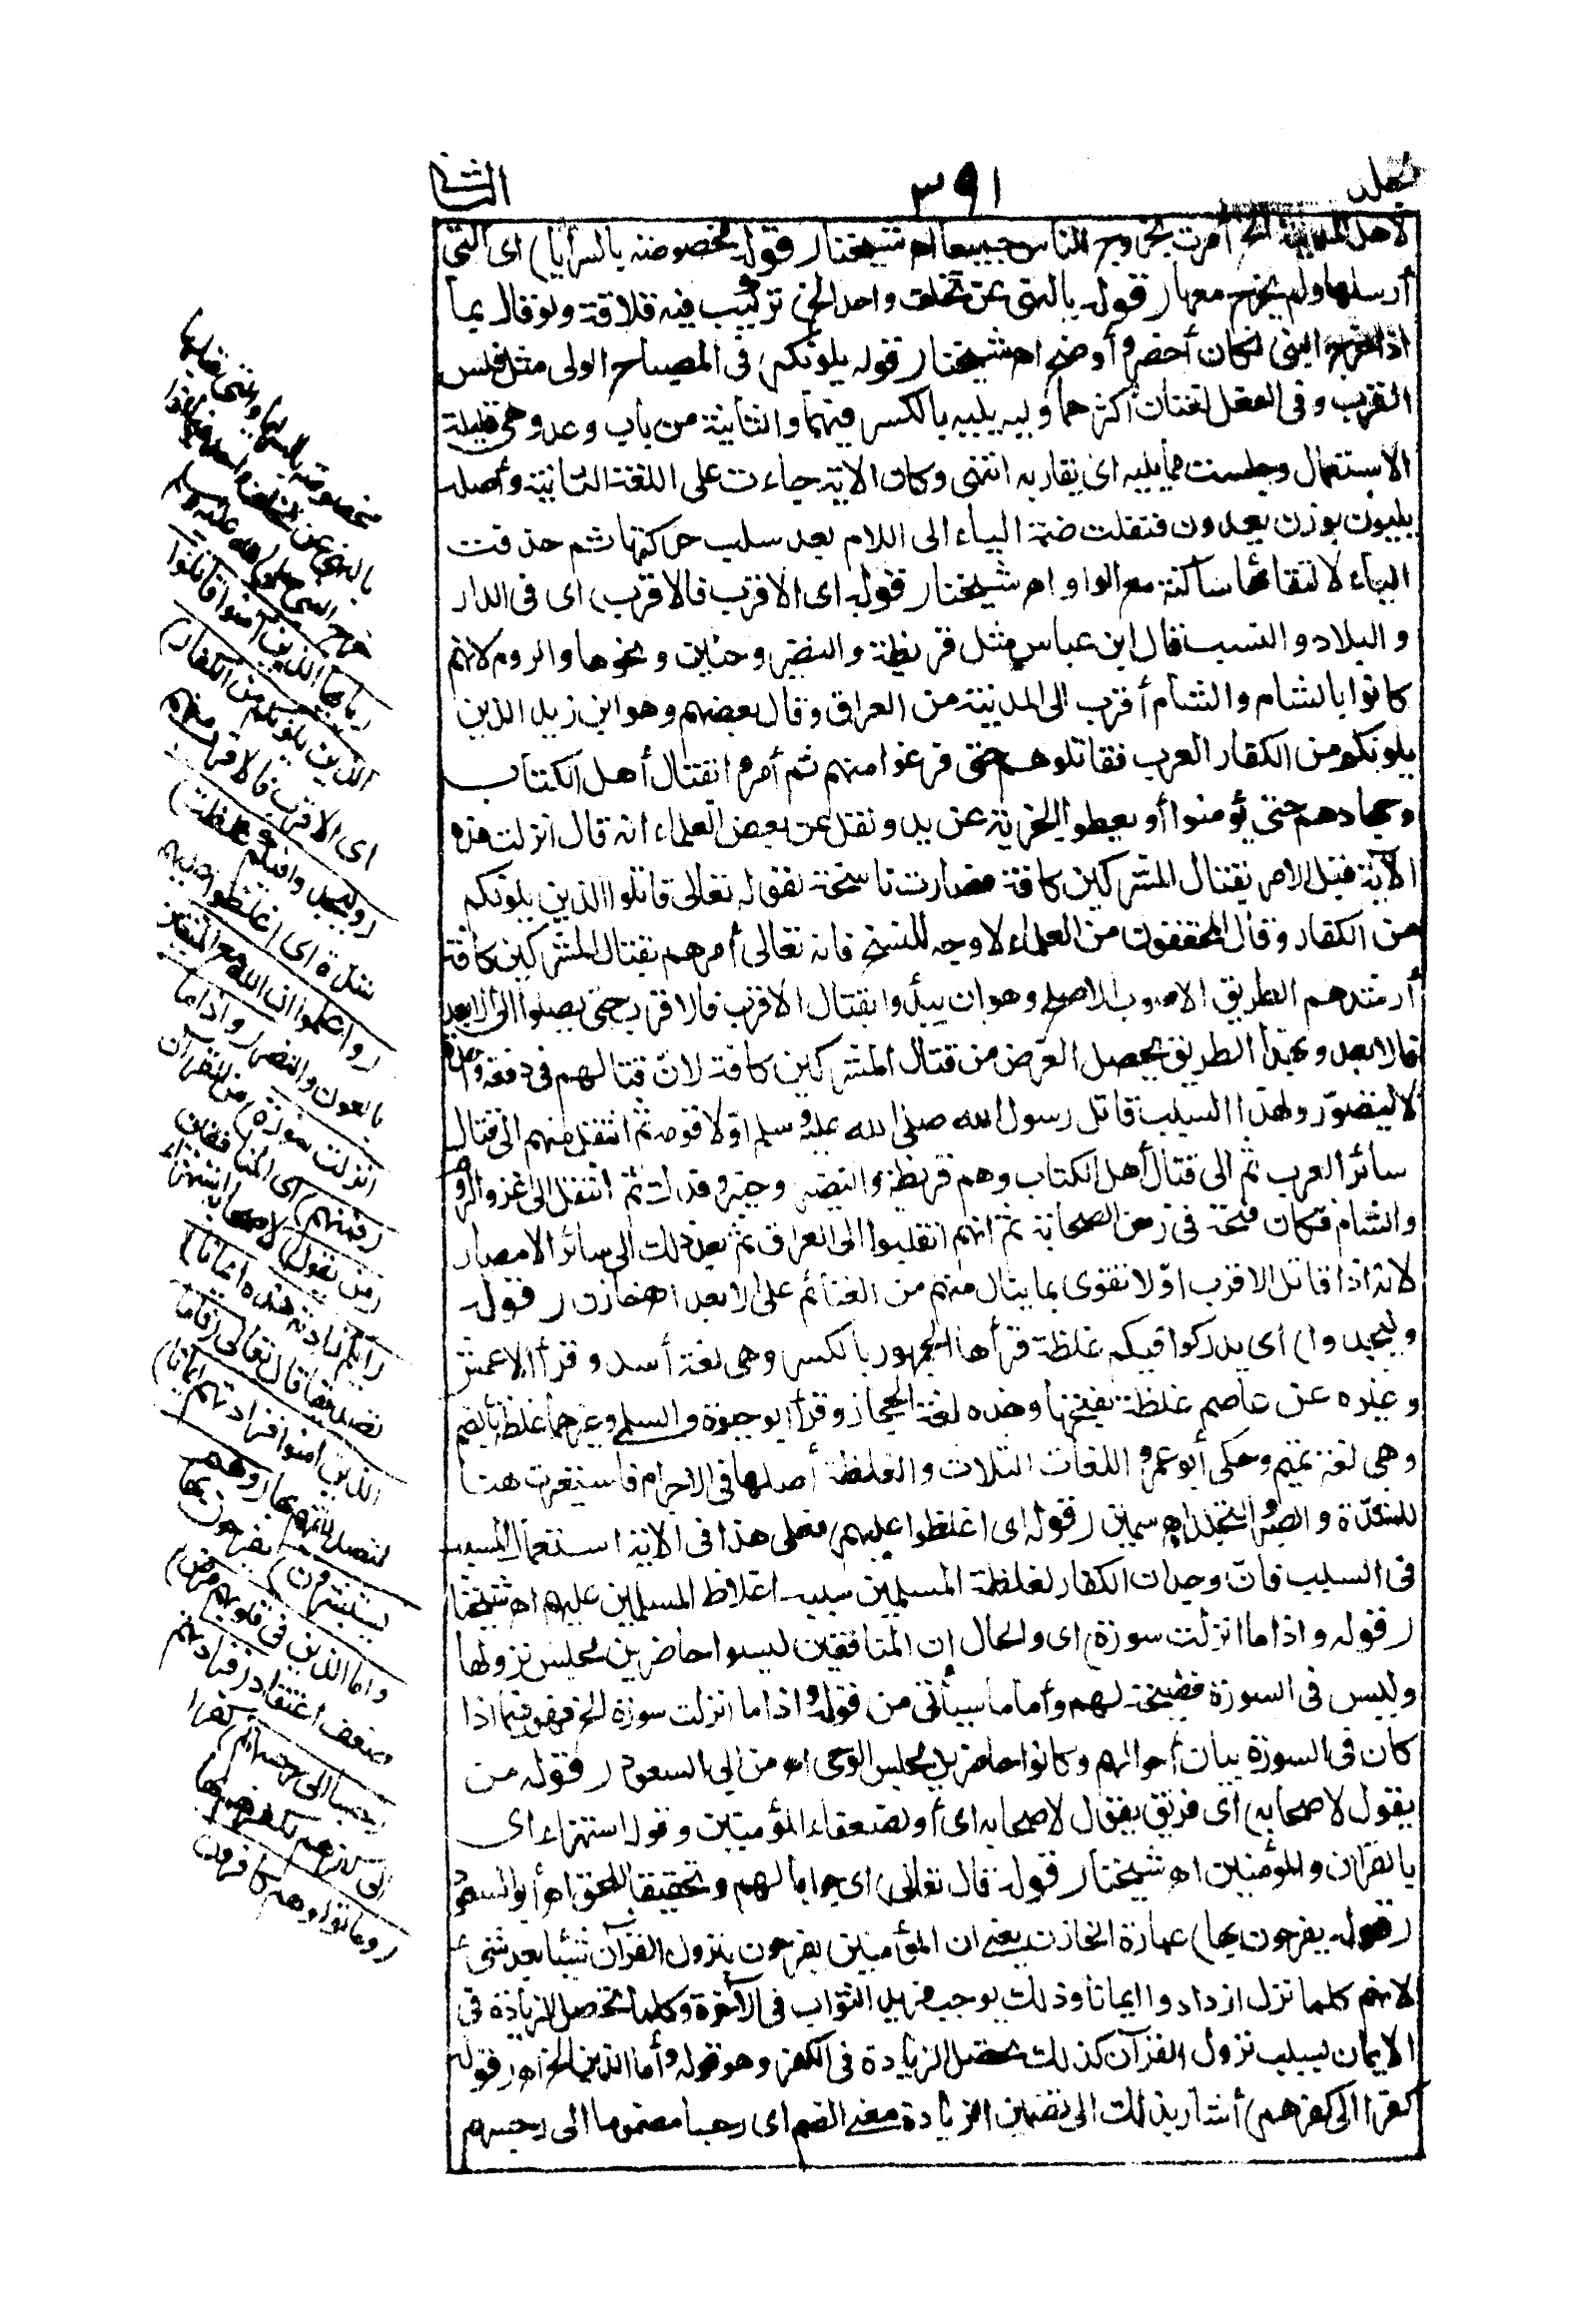 ٣٩١
لاهل المدينة الخ أمرت بخروج الناس جميعا اه شيخنا (قوله مخصوصة بالسرايا) اى التى
أرسلها ولم يخرج معها (قوله بالنهى عن تخلف واحد الخ) تركيب فيه قلاقة ولو قال بما
اذا خرج النبى لكان أخصر وأوضح اه شيخنا (قوله يلونكم) فى المصباح الولى مثل فلس
القرب وفى الفعل لغتان أكثرهما وليه يليه بالكسر فيهما والثانية من باب وعد وهى قليلة
الاستعمال وجلست مما يليه اى يقاربه انتهى وكان الاية جاءت على اللغة الثانية وأصله
يليون بوزن يعدون فنقلت ضمة الياء الى اللام بعد سلب حركتها ثم حذفت
الياء لالتقائها ساكنة مع الواو اه شيخنا (قوله اى الاقرب فالاقرب) اى فى الدار
والبلاد والنسب قال ابن عباس مثل قريظة والنضير وحنين ونحوها والروم لانهم
كانوا بالشام والشام أقرب الى المدينة من العراق وقال بعضهم وهو ابن زيد الذين
يلونكم من الكفار العرب فقاتلوهم حتى فرغوا منهم ثم أمروا بقتال أهل الكتاب
وجهادهم حتى يؤمنوا أو يعطوا الجزية عن يد ونقل عن بعض العلماء انه قال انزلت هذه
الآية قبل الامر بقتال المشركين كافة فصارت ناسخة لقوله تعالى قاتلوا الذين يلونكم
من الكفار وقال المحققون من العلماء لا وجه للنسخ فانه تعالى أمرهم بقتال المشركين كافة
أرشدهم الطريق الاصوب الاصلح وهو ان يبدوا بقتال الاقرب فالاقرب حتى يصلوا الى الابعد
فالابعد وبهذا الطريق يحصل الغرض من قتال المشركين كافة لانّ قتالهم فى دفعة واحدة
لا يتصوّر ولهذا السبب قاتل رسول الله صلى الله عليه وسلم اوّلا قومه ثم انتقل منهم الى قتال
سائر العرب ثم الى قتال أهل الكتاب وهم قريظة والنضير وخيبر وفدك ثم انتقل الى غزو الروم
والشام فكان فتحه فى زمن الصحابة ثم انهم انقلبوا الى العراق ثم بعد ذلك الى سائر الامصار
لانه اذا قاتل الاقرب اوّلا تقوى بما ينال منهم من الغنائم على الابعد اه خازن (قوله
وليجدوا) اى يدركوا فيكم غلظة قرأها الجمهور بالكسر وهى لغة أسد وقرأ الاعمش
وغيره عن عاصم غلظة بفتحها وهذه لغة الحجاز وقرأ ابو حيوة والسلمى وغيرهما غلظة بالضم
وهى لغة تميم وحكى أبو عمرو اللغات الثلاث والغلظة أصلها فى الاجرام فاستعيرت هنا
للشدّة والصبر والتجلد اه سمين (قوله اى اغلظوا عليهم) فعلى هذا فى الاية استعمال المسبب
فى السبب فانّ وجدان الكفار لغلظة المسلمين سببه اغلاظ المسلمين عليهم اه شيخنا
(قوله واذا ما انزلت سورة) اى والحال ان المنافقين ليسوا حاضرين مجلس نزولها
وليس فى السورة فضيحة لهم وأما ما سيأتى من قوله واذا ما انزلت سورة الخ فهو فيما اذا
كان فى السورة بيان أحوالهم وكانوا حاضرين مجلس الوحى اه من ابى السعود (قوله من
يقول لاصحابه) اى فريق يقول لاصحابه اى أو لضعفاء المؤمنين وقوله استهزاء اى
بالقرآن والمؤمنين اه شيخنا (قوله قال تعالى) اى جوابا لهم وتحقيقا للحق اه أبو السعود
(قوله يفرحون بها) عبارة الخازن يعنى ان المؤمنين يفرحون بنزول القرآن شيئا بعد شئ
لانهم كلما نزل ازدادوا ايمانا وذلك يوجب مزيد الثواب فى الآخرة وكما تحصل الزيادة فى
الايمان بسبب نزول القرآن كذلك تحصل الزيادة فى الكفر وهو قوله وأما الذين الخ اه (قوله
كفرا الى كفرهم) أشار بذلك الى تضمين الزيادة معنى الضم اى رجسا مضموما الى رجسهم
مخصوصة بالسرايا والتى قبلها
بالنهى عن تخلف واحد فيما اذا
خرج النبى صلى الله عليه وسلم
(يأيها الذين آمنوا قاتلوا
الذين يلونكم من الكفار)
اى الاقرب فالاقرب منهم
(وليجدوا فيكم غلظة)
شدة اى اغلظوا عليهم
(واعلموا ان الله مع المتقين)
بالعون والنصر (واذا ما
انزلت سورة) من القرآن
(فمنهم) اى المنافقين
(من يقول) لاصحابه استهزاء
(ايكم زادته هذه ايمانا)
تصديقا قال تعالى (فاما
الذين امنوا فزادتهم ايمانا)
لتصديقهم بها (وهم
يستبشرون) يفرحون بها
(واما الذين فى قلوبهم مرض)
ضعف اعتقاد (فزادتهم
رجسا الى رجسهم) كفرا
الى كفرهم لكفرهم بها
(وماتوا وهم كافرون